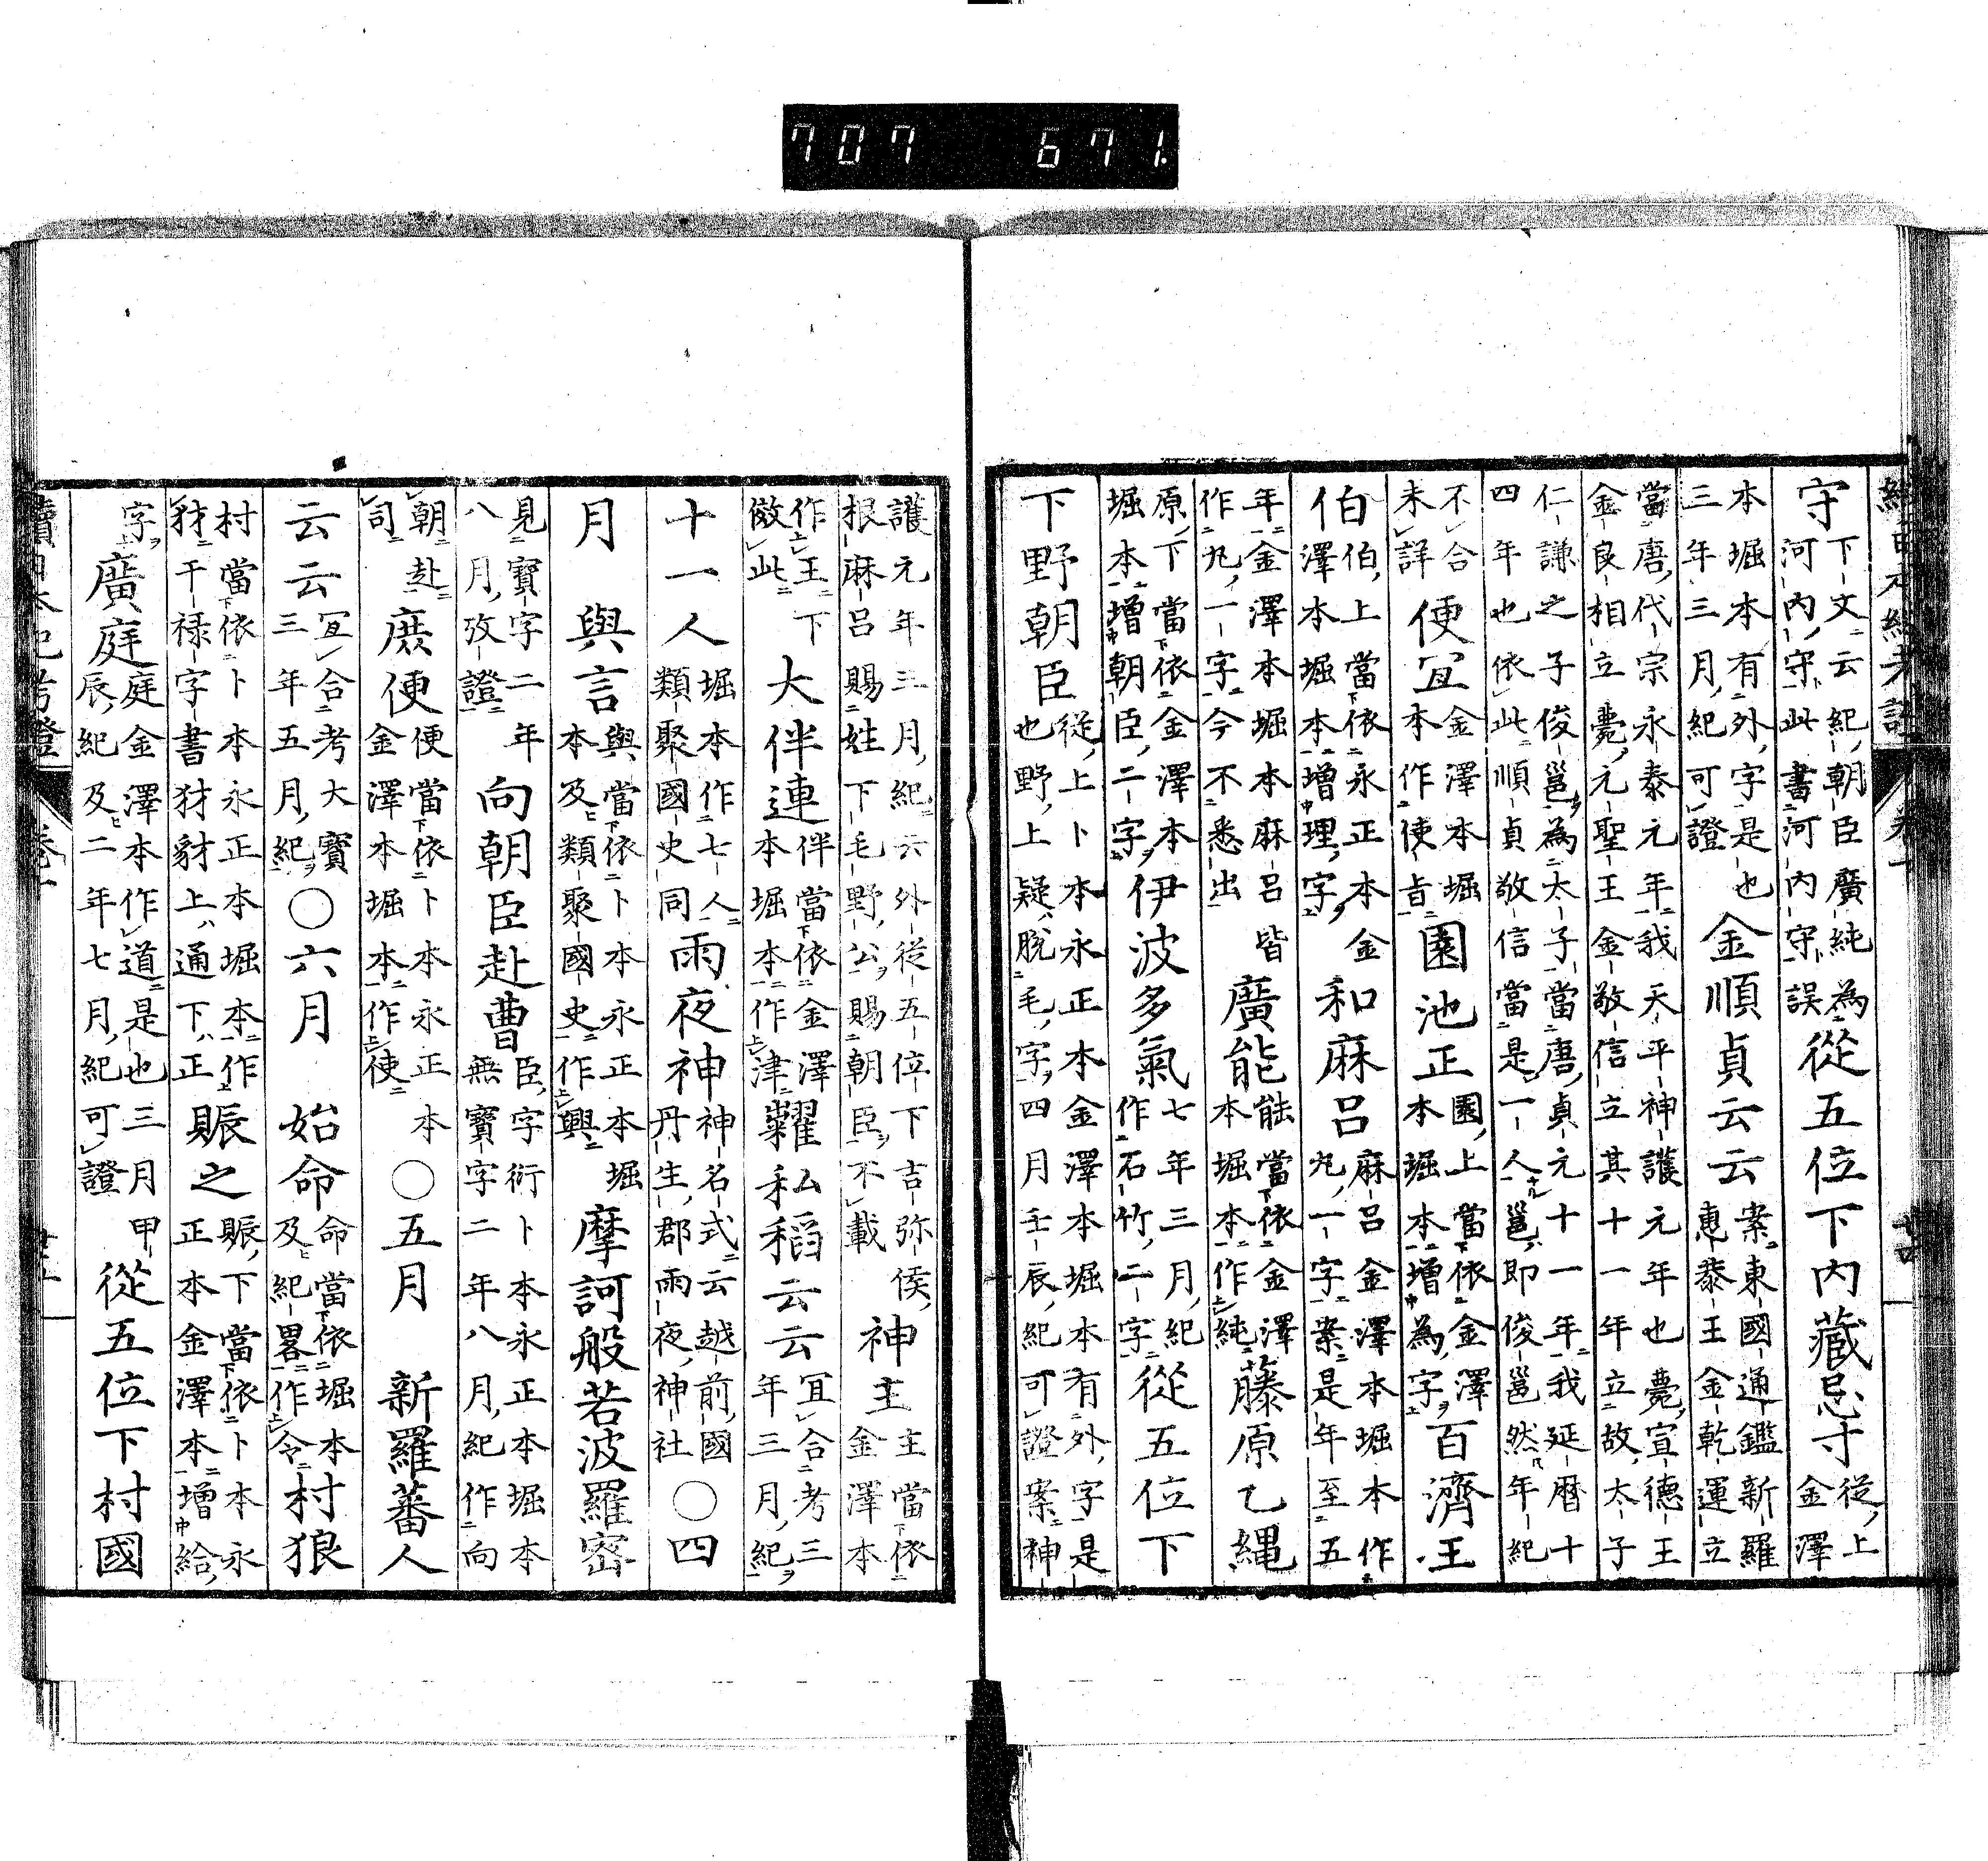 續日本紀考證 卷十
守下文云紀朝臣廣純為
河内守此書河内守誤從五位下内藏忌寸從上
金澤
本堀本有外字是也
三年三月紀可證金順貞云云案東國通鑑新羅
惠恭王金乾運立
當唐代宗永泰元年我天平神護元年也薨宣德王
金良相立薨元聖王金敬信立其十一年立故太子
仁謙之子俊邕為太子當唐貞元十一年我延暦十
四年也依此順貞敬信當是一人邕即俊邕然年紀
不合
未詳便宜金澤本堀
本作使旨園池正園上當依金澤
本堀本增為字百濟王
伯伯上當依永正本金
澤本堀本增理字和麻呂麻呂金澤本堀本作
丸一字案是年至五
年金澤本堀本麻呂皆
作丸一字今不悉出廣能能當依金澤
本堀本作純藤原乙縄
原下當依金澤本
堀本增朝臣二字伊波多氣七年三月紀
作石竹二字從五位下
下野朝臣從上卜本永正本金澤本堀本有外字是
也野上疑脱毛字四月壬辰紀可證案神
護元年三月紀六外從五位下吉弥侯
根麻呂賜姓下毛野公賜朝臣不載神主主當依
金澤本
作王下
倣此大伴連伴當依金澤
本堀本作津糶私稻云云冝合考三
年三月紀
十一人堀本作七人
類聚國史同雨夜神神名式云越前國
丹生郡雨夜神社○四
月 與言與當依卜本永正本堀
本及類聚國史作興摩訶般若波羅密
見寳字二年
八月攷證向朝臣赴曹臣字衍卜本永正本堀本
無寳字二年八月紀作向
朝赴
司庶便便當依卜本永正本
金澤本堀本作使○五月 新羅蕃人
云云冝合考大寳
三年五月紀○六月 始命命當依堀本
及紀畧作令村狼
村當依卜本永正本堀本作
豺干禄字書犲豺上通下正賑之賑下當依卜本永
正本金澤本增給
字廣庭庭金澤本作道是也三月甲
辰紀及二年七月紀可證從五位下村國
續日本紀考證 卷十
707 671.